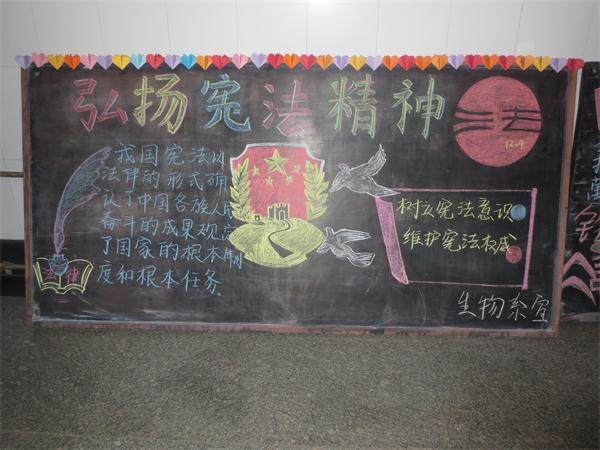 弘扬宪法精神
法
12.4
我国宪法以
法律的形式确
认了中国各族人民
奋斗的成果规定
了国家的根本制
度和根本任务.
树立宪法意识
维护宪法权威
法律
生物系宣